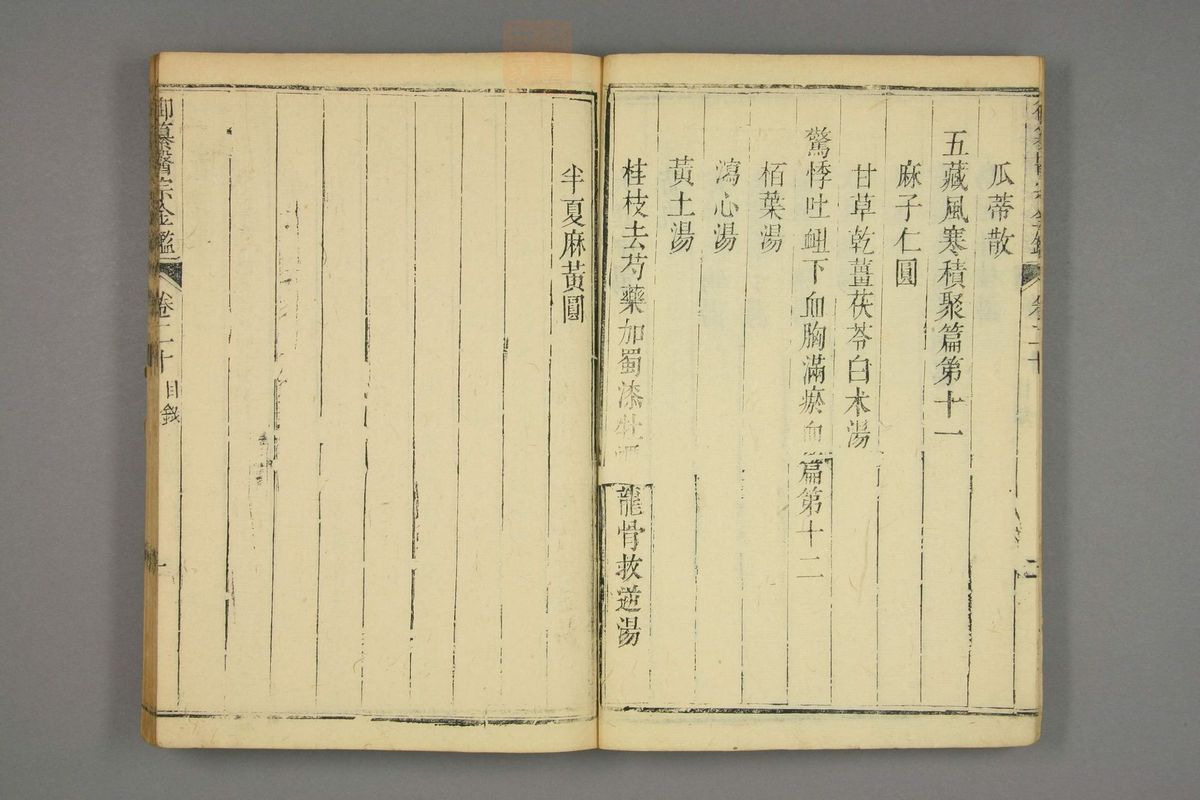 瓜蒂散
五藏風寒積聚篇第十一
麻子仁圓
甘草乾薑茯苓白朮湯
驚悸吐衄下血胸滿瘀血篇第十二
栢葉湯
瀉心湯
黃土湯
桂枝去芍藥加蜀漆牡龍骨救逆湯
半夏麻黃圓
御纂醫宗金鑑 卷二十 目錄